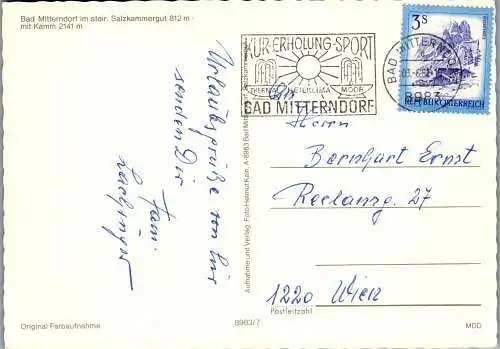 Bad Mitterndorf im steir. Salzkammergut 812 m -
mit Kamm 2141 m
Urlaubsgrüße von hier
senden Dir
Fam.
KUR·ERHOLUNG·SPORT
HEILKLIMA MOOR
BAD MITTERNDORF
BAD MITTERNDORF
8983
3 S
REPUBLIK ÖSTERREICH
An
Herrn
Bernhart Ernst
27
1220 Wien
Postleitzahl
Aufnahme und Verlag: Foto Helmut Kain, A-8983 Bad Mitterndorf
Original Farbaufnahme
8983/7
MDD